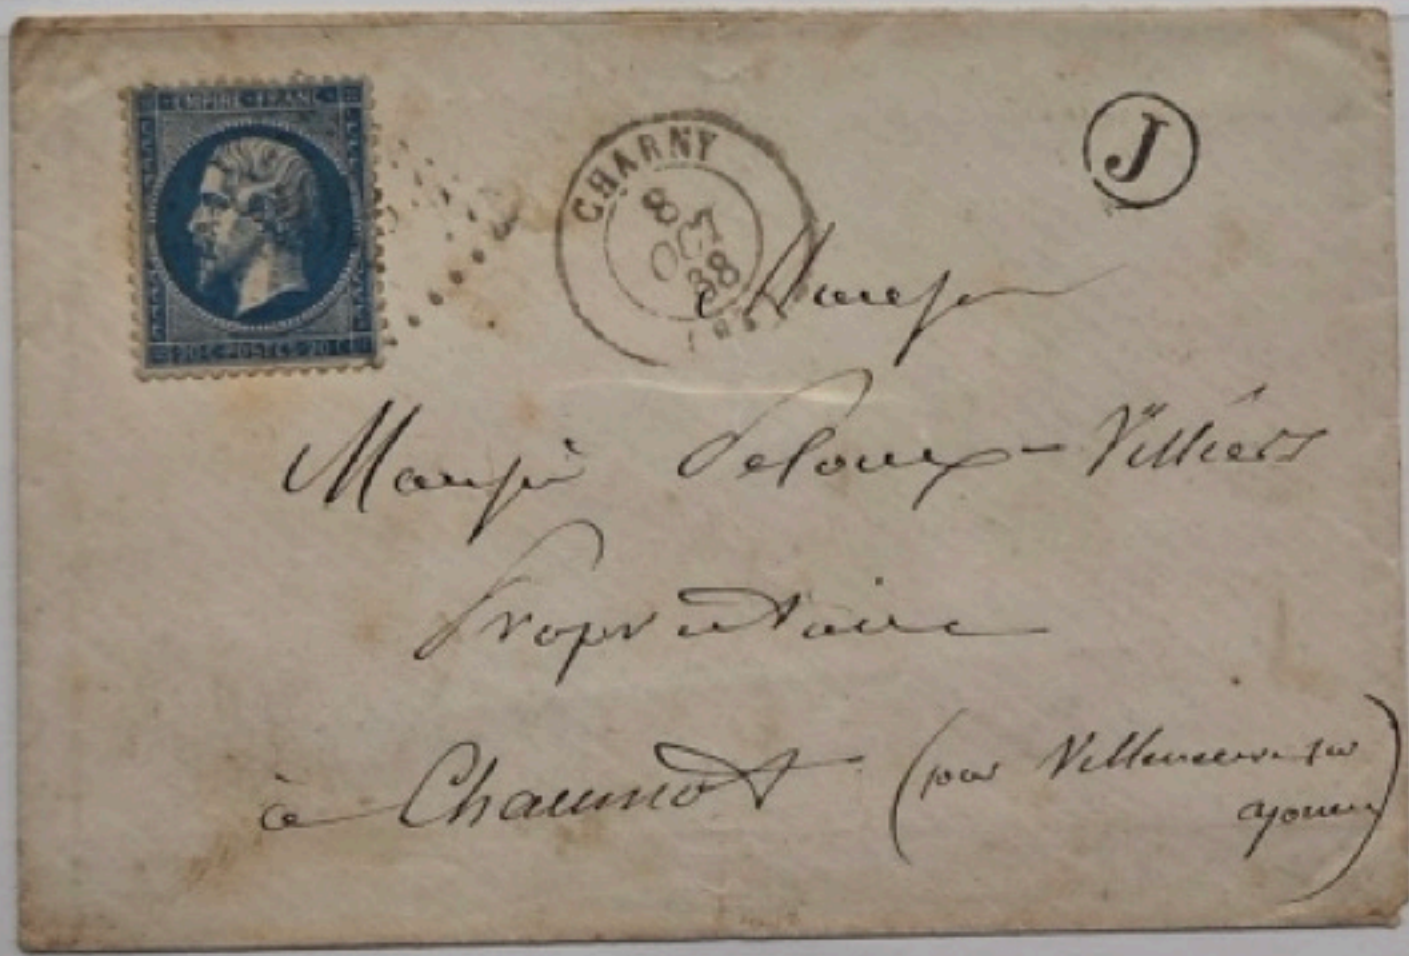 EMPIRE FRANC
20 C POSTES 20 C
CHARNY
8
OCT
J
à Monsieur
Monsieur Peloux-Villiers
Propriétaire
à Chaumot (par Villeneuve sur
yonne)